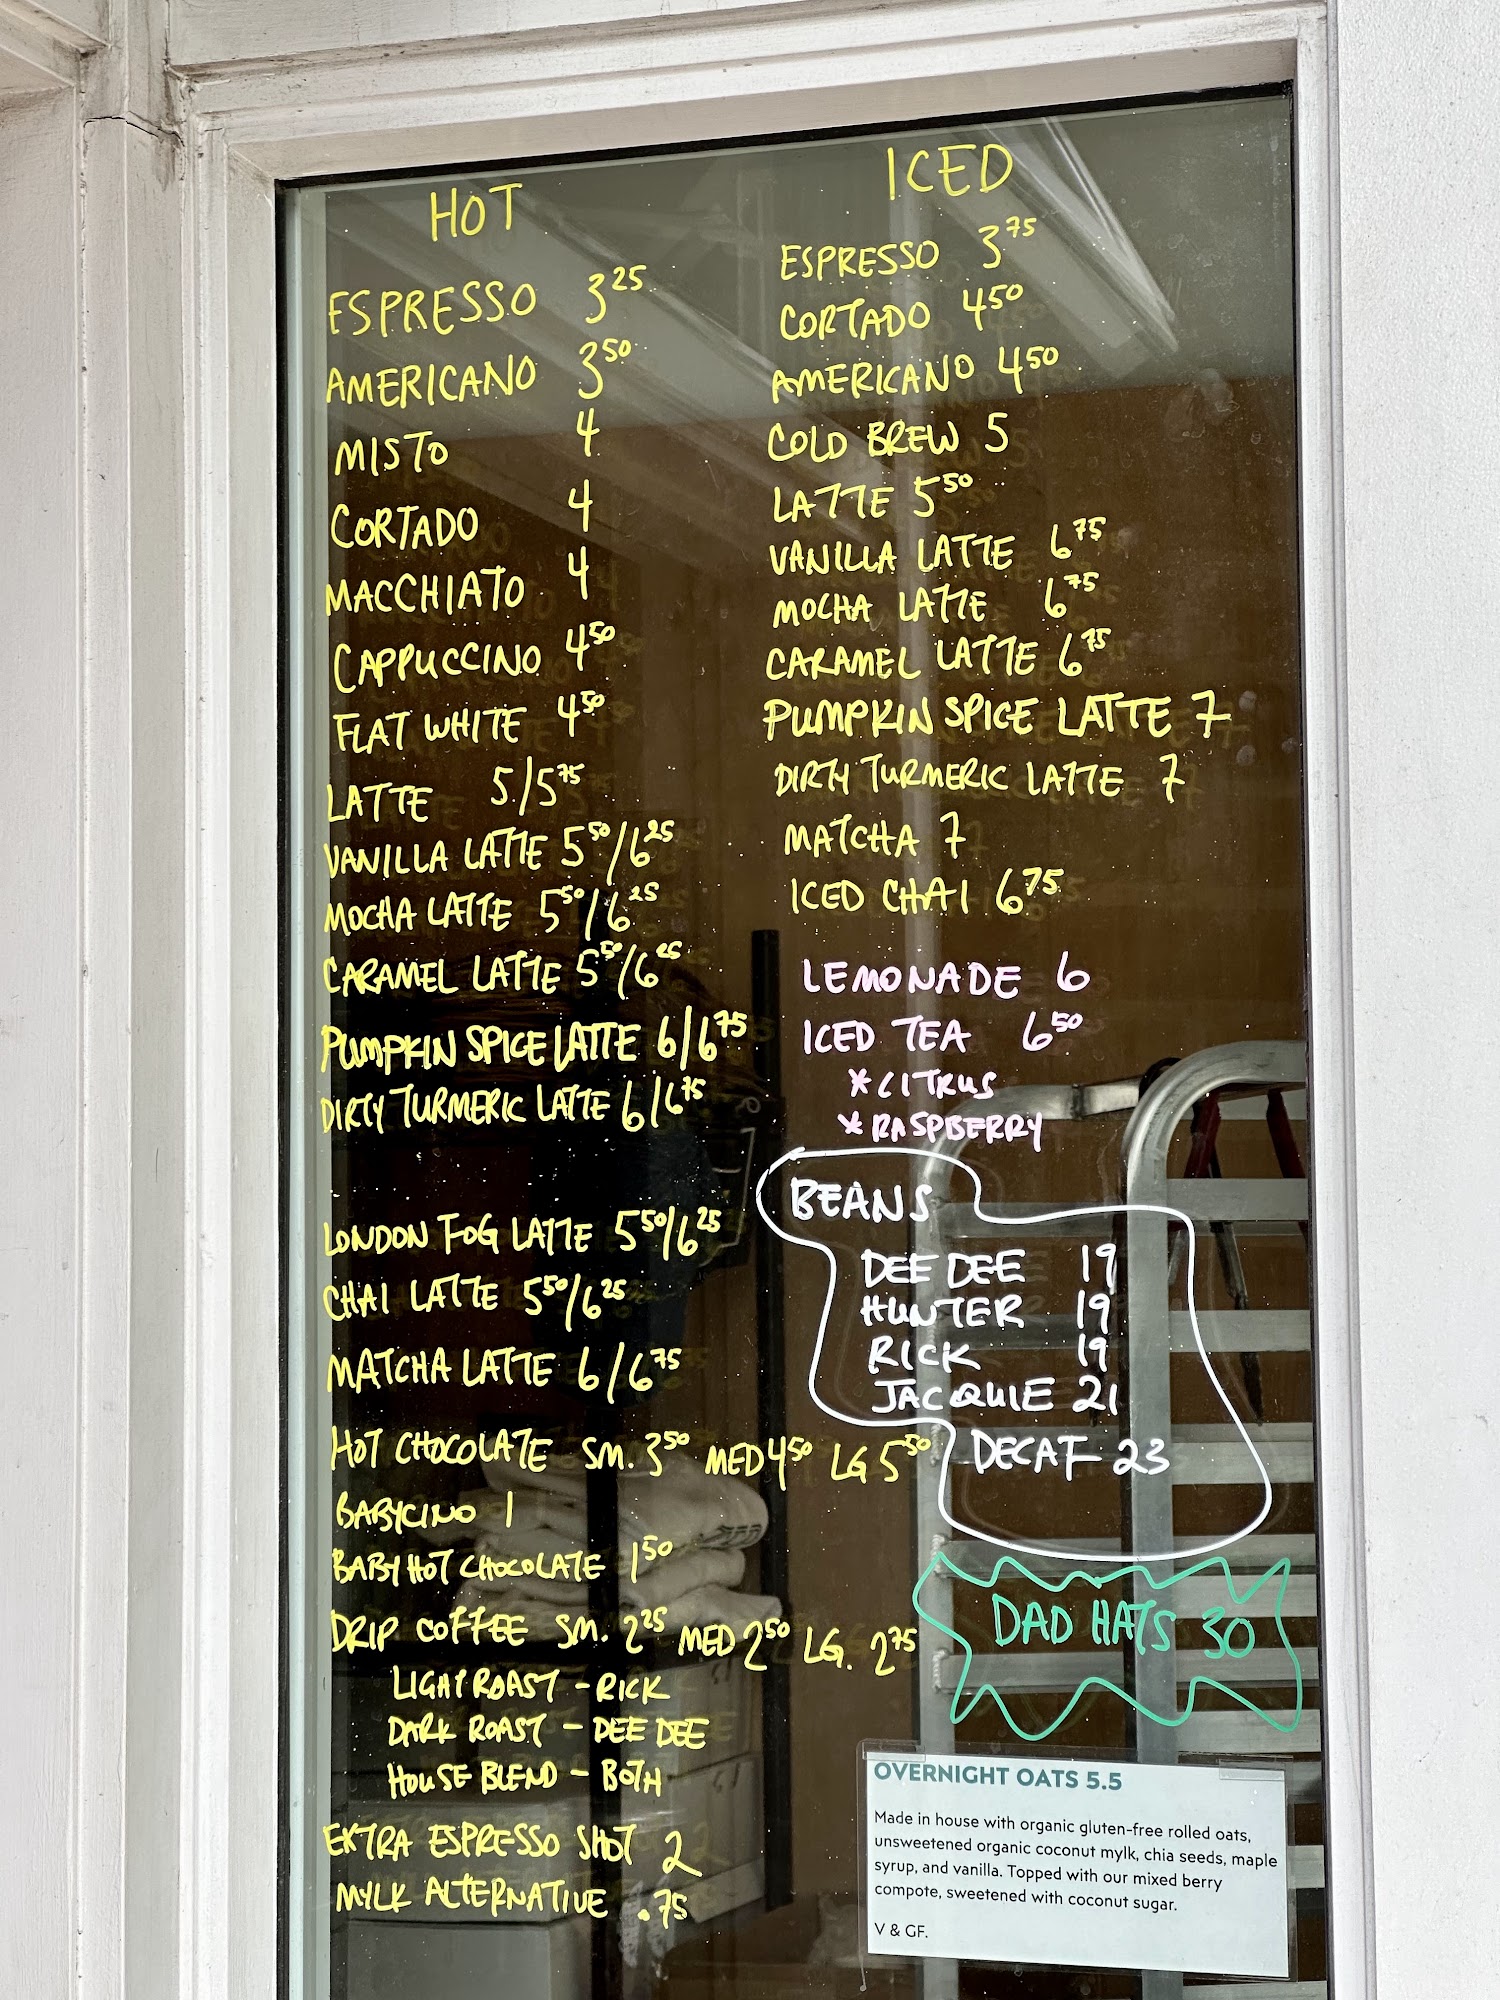 HOT
ESPRESSO 3.25
AMERICANO 3.50
MISTO 4
CORTADO 4
MACCHIATO 4
CAPPUCCINO 4.50
FLAT WHITE 4.50
LATTE 5/5.75
VANILLA LATTE 5.50/6.25
MOCHA LATTE 5.50/6.25
CARAMEL LATTE 5.50/6.25
PUMPKIN SPICE LATTE 6/6.75
DIRTY TURMERIC LATTE 6/6.75
LONDON FOG LATTE 5.50/6.25
CHAI LATTE 5.50/6.25
MATCHA LATTE 6/6.75
HOT CHOCOLATE SM. 3.50 MED 4.50 LG 5.50
BABYCINO 1
BABY HOT CHOCOLATE 1.50
DRIP COFFEE SM. 2.25 MED 2.50 LG. 2.75
LIGHT ROAST - RICK
DARK ROAST - DEE DEE
HOUSE BLEND - BOTH
EXTRA ESPRESSO SHOT 2
MYLK ALTERNATIVE .75
ICED
ESPRESSO 3.75
CORTADO 4.50
AMERICANO 4.50
COLD BREW 5
LATTE 5.50
VANILLA LATTE 6.75
MOCHA LATTE 6.75
CARAMEL LATTE 6.75
PUMPKIN SPICE LATTE 7
DIRTY TURMERIC LATTE 7
MATCHA 7
ICED CHAI 6.75
LEMONADE 6
ICED TEA 6.50
*CITRUS
*RASPBERRY
BEANS
DEE DEE 19
HUNTER 19
RICK 19
JACQUIE 21
DECAF 23
DAD HATS 30
OVERNIGHT OATS 5.5
Made in house with organic gluten-free rolled oats,
unsweetened organic coconut mylk, chia seeds, maple
syrup, and vanilla. Topped with our mixed berry
compote, sweetened with coconut sugar.
V & GF.